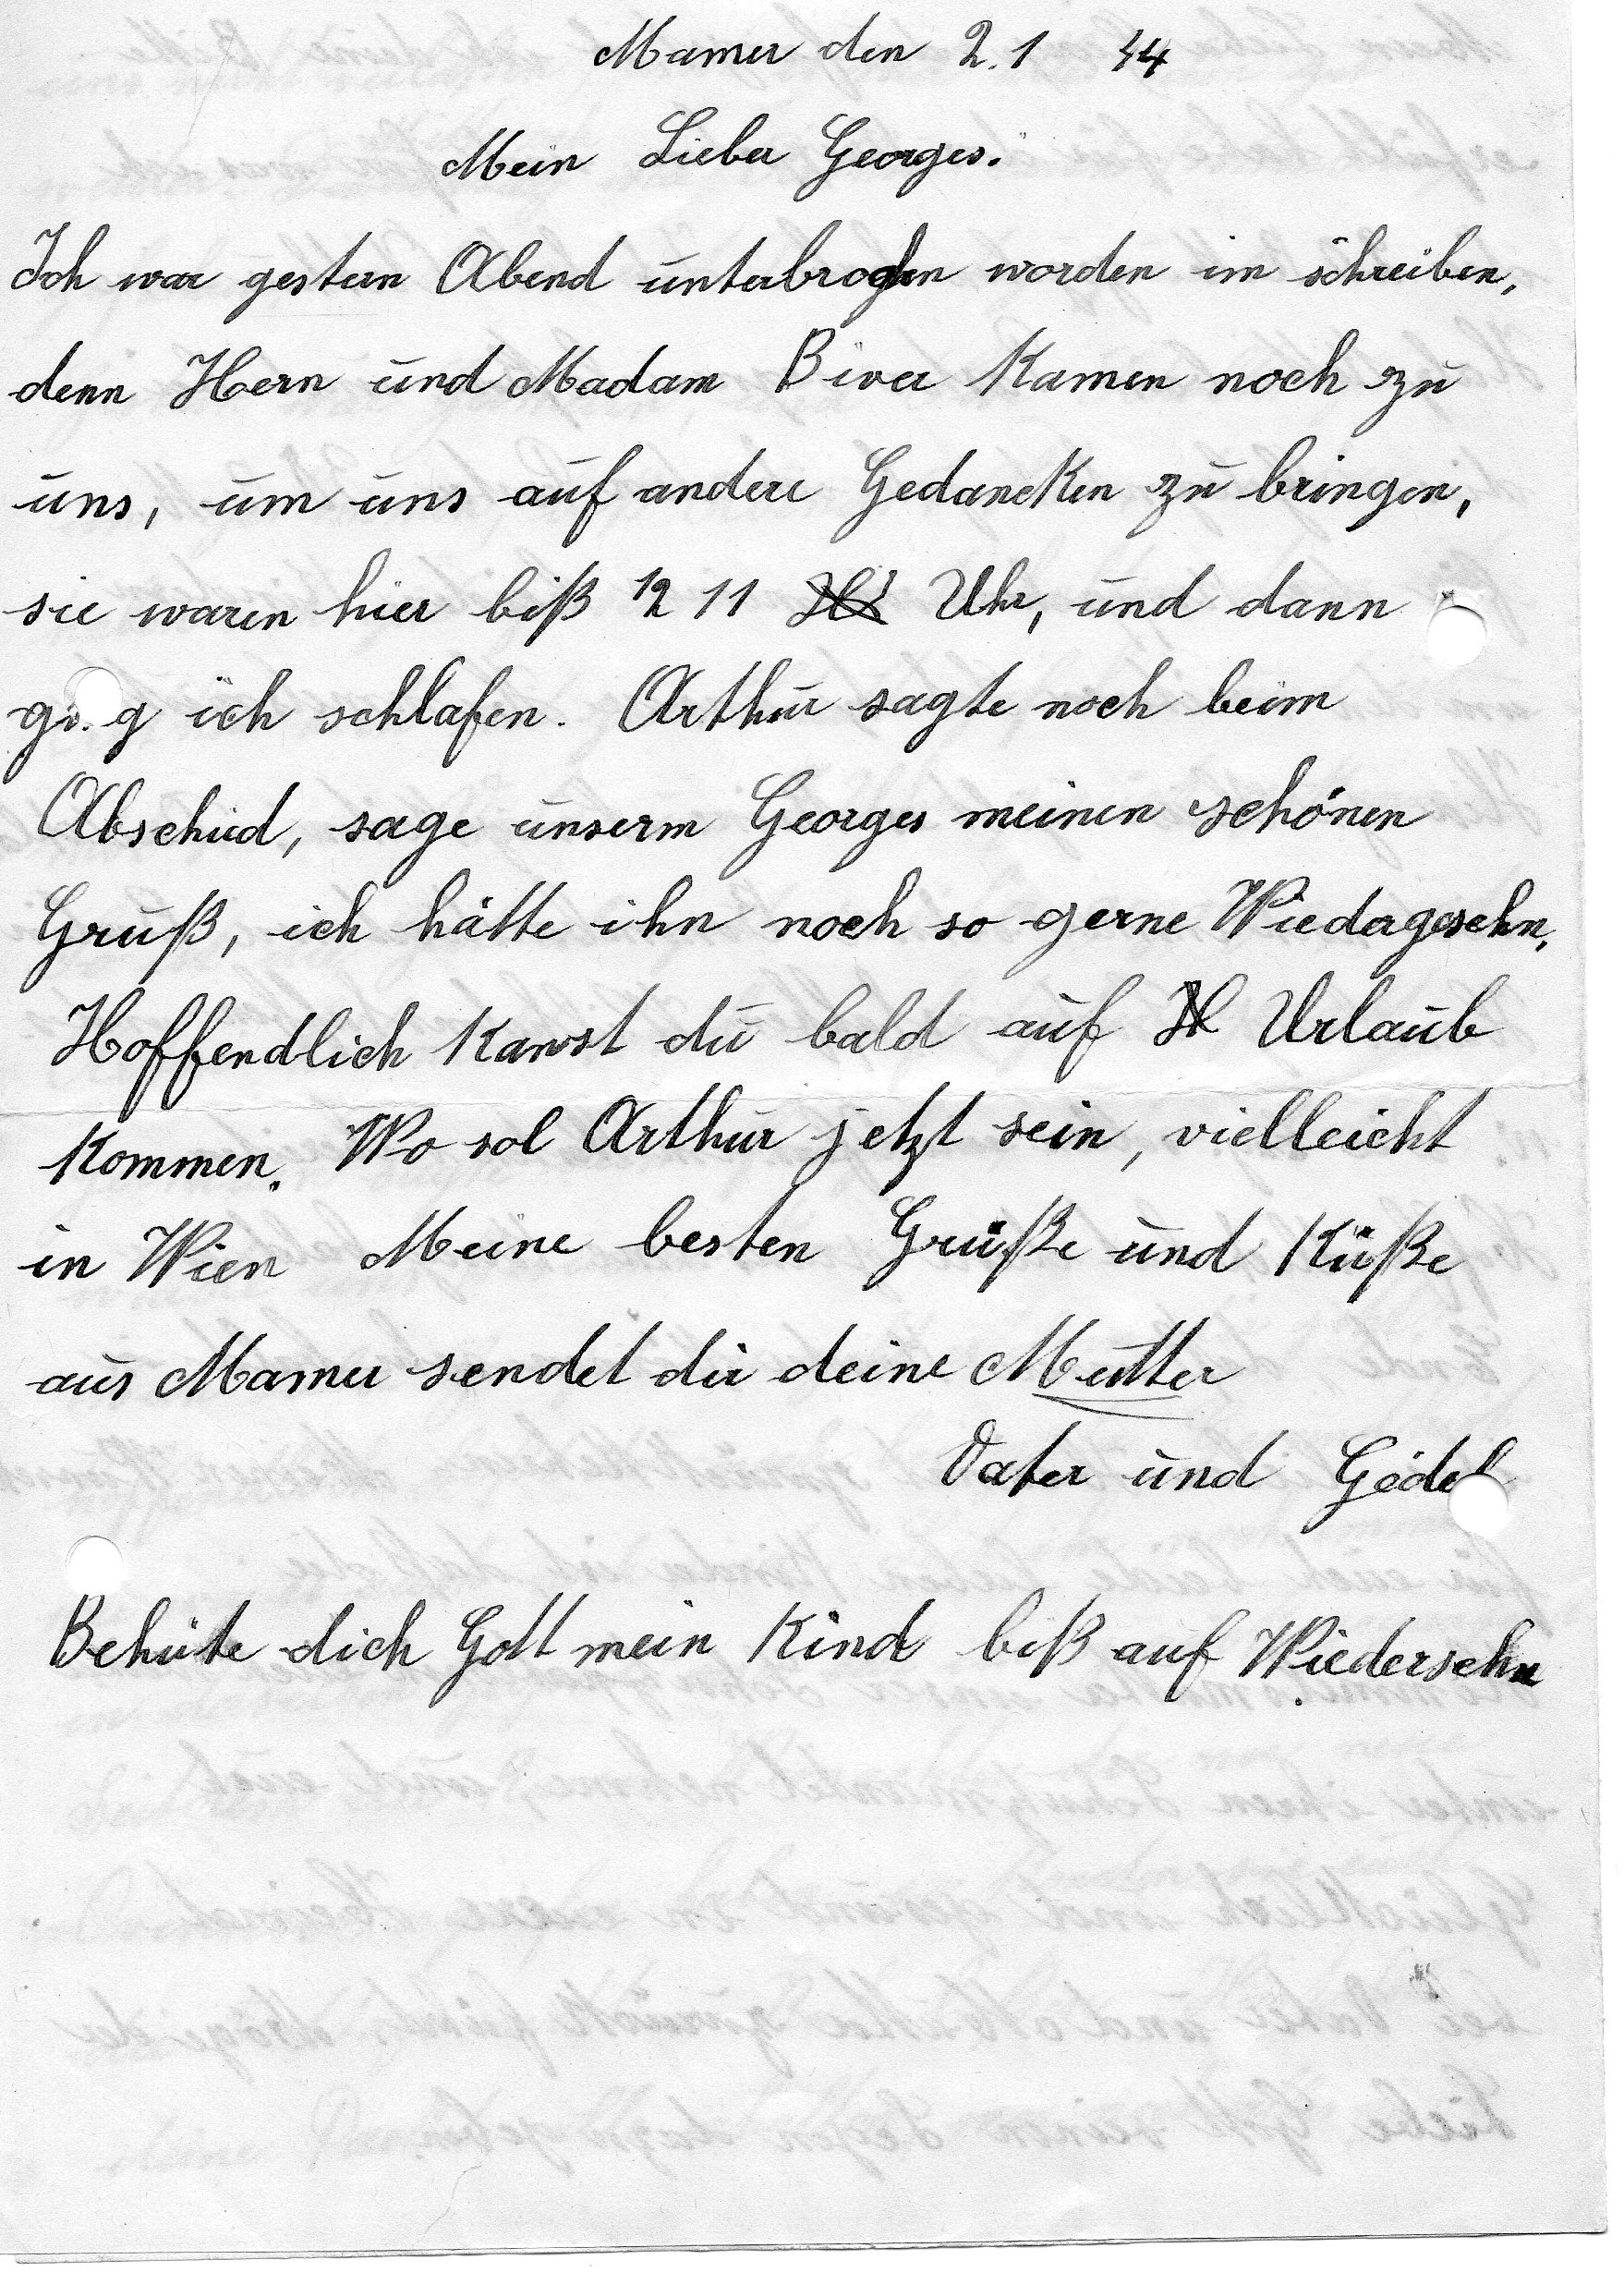 Mamer den 2.1 44
Mein Lieber Georges.
Ich war gestern Abend unterbrochen worden im schreiben,
denn Hern und Madam Biver Kamen noch zu
uns, um uns auf andere Gedancken zu bringen,
sie waren hier biß 12 11 Uhr, und dann
ging ich schlafen. Arthur sagte noch beim
Abschied, sage unserm Georges meinen schönen
Gruß, ich hätte ihn noch so gerne Wiedergesehn.
Hoffendlich Kanst du bald auf Urlaub
Kommen. Wo sol Arthur jetzt sein, vielleicht
in Wien Meine besten Grüße und Küße
aus Mamer sendet dir deine Mutter
Vater und Gödel
Behüte dich Gott mein Kind biß auf Wiedersehn